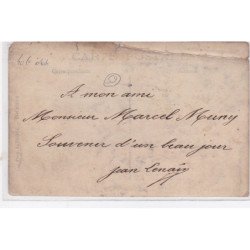 A mon ami
Monsieur Marcel Muny
Souvenir d'un beau jour
Jean